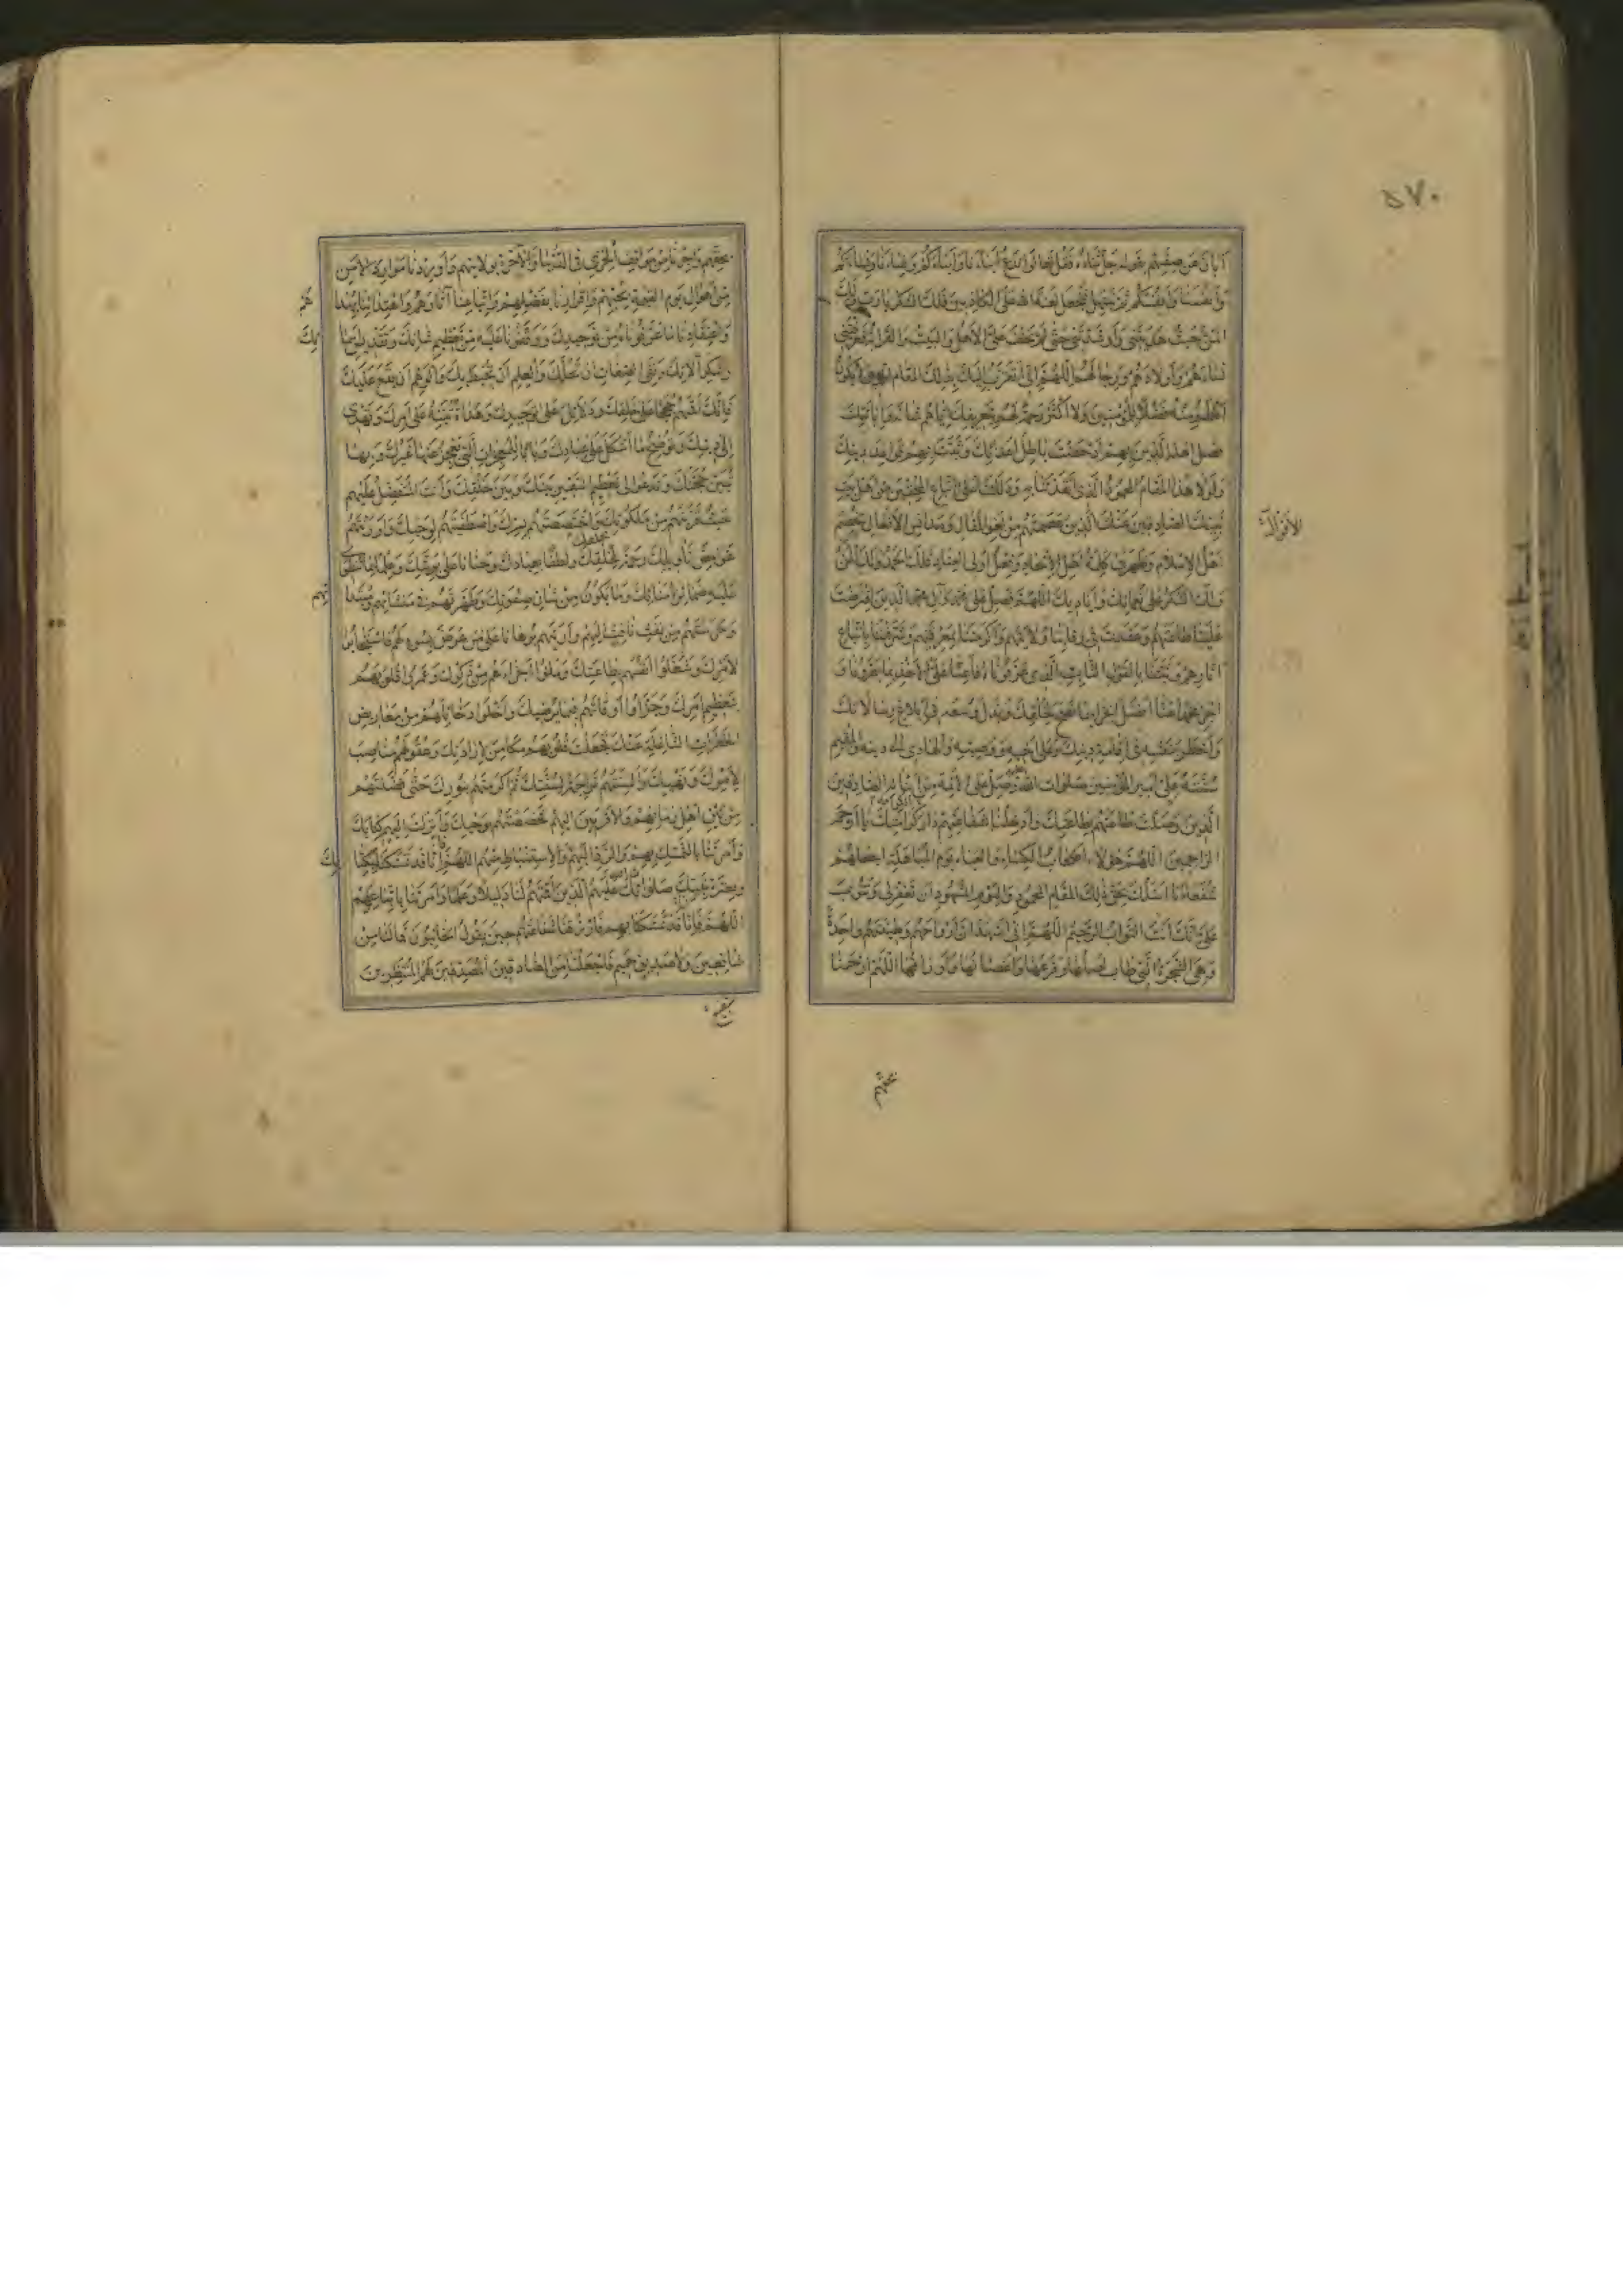 ٥٧٠
أبان عن صفتهم بقوله جل ثناؤه فقل تعالوا ندع أبناءنا وأبناءكم ونساءنا ونساءكم
وأنفسنا وأنفسكم ثم نبتهل فنجعل لعنة الله على الكاذبين فلك الشكر يا رب ولك
المن حيث هديتني وأرشدتني حتى لم يخف علي الأهل والبيت والقرابة فعرفتني
نساءهم وأولادهم ورجالهم اللهم إني أتقرب إليك بذلك المقام الذي لا يكون
أعظم منه فضلا للمؤمنين ولا أكثر رحمة لهم بتعريفك إياهم شأنه وإبانتك
فضل أهله الذين بهم أدحضت باطل أعدائك وثبت بهم قواعد دينك
ولولا هذا المقام المحمود الذي أنقذتنا به ودللتنا على اتباع المحقين من أهل بيت
نبيك الصادقين عنك الذين عصمتهم من لغو المقال ومدانس الأفعال لخصم
أهل الإسلام وظهرت كلمة أهل الإلحاد وفعل أولي العناد فلك الحمد ولك المن
ولك الشكر على نعمائك وأياديك اللهم فصل على محمد وآل محمد الذين افترضت
علينا طاعتهم وعقدت في رقابنا ولايتهم وأكرمتنا بمعرفتهم وشرفتنا باتباع
آثارهم وثبتنا بالقول الثابت الذي عرفوناه فأعنا على الأخذ بما بصروناه و
اجز محمدا عنا أفضل الجزاء بما نصح لخلقك وبذل وسعه في إبلاغ رسالاتك
وأخطر بنفسه في إقامة دينك وعلى أخيه ووصيه والهادي إلى دينه والقيم
بسنته علي أمير المؤمنين صلوات الله وصل على الأئمة من أبنائه الصادقين
الذين وصلت طاعتهم بطاعتك وأدخلنا بشفاعتهم دار كرامتك يا أرحم
الراحمين اللهم هؤلاء أصحاب الكساء والعباء يوم المباهلة اجعلهم
شفعاءنا أسئلك بحق ذلك المقام المحمود واليوم المشهود أن تغفر لي وتتوب
علي إنك أنت التواب الرحيم اللهم إني أشهد أن أرواحهم وطينتهم واحدة
وهي الشجرة التي طاب أصلها وفرعها وأغصانها وأوراقها اللهم ارحمنا
بحقهم
بحقهم وأجرنا من مواقف الخزي في الدنيا والآخرة بولايتهم وأوردنا موارد الأمن
من أهوال يوم القيمة بحبهم وإقرارنا بفضلهم واتباعنا آثارهم واهتدائنا بهداهم
واعتقادنا ما عرفوناه من توحيدك ووقفونا عليه من تعظيم شأنك وتقديس أسمائك
وشكر آلائك ونفي الصفات أن تحلك والعلم أن يحيط بك والوهم أن يقع عليك
فإنك أقمتهم حججا على خلقك ودلائل على توحيدك وهداة تنبه على أمرك وتهدي
إلى دينك وتوضح ما أشكل على عبادك وبابا للمعجزات التي يعجز عنها غيرك وبها
تبين حجتك وتدعو إلى تعظيم السفير بينك وبين خلقك وأنت المتفضل عليهم
حيث قربتهم من ملكوتك واختصصتهم بسرك واصطفيتهم لوحيك وأورثتهم
غوامض تأويلك رحمة بخلقك ولطفا بعبادك وحنانا على بريتك وعلما بما تنطوي
عليه ضمائر أمنائك وما يكون من شأن صفوتك وطهرتهم في منشأهم ومبتدأهم
وحرستهم من نفث نافث إليهم وأريتهم برهانا على من عرض بسوء لهم فاستجابوا
لأمرك وشغلوا أنفسهم بطاعتك وملؤا أجزاءهم من ذكرك وعمروا قلوبهم
بتعظيم أمرك وجزأوا أوقاتهم فيما يرضيك وأخلوا دخائلهم من معاريض
الخطرات الشاغلة عنك فجعلت قلوبهم مكامن لإرادتك وعقولهم مناصب
لأمرك ونهيك وألسنتهم تراجمة لسنتك ثم أكرمتهم بنورك حتى فضلتهم
من بين أهل زمانهم والأقربين إليهم فخصصتهم بوحيك وأنزلت إليهم كتابك
وأمرتنا بالتمسك بهم والرد إليهم والاستنباط منهم اللهم إنا قد تمسكنا بكتابك
وبعترة نبيك صلواتك عليهم الذين أقمتهم لنا دليلا وعلما وأمرتنا باتباعهم
اللهم فإنا قد تمسكنا بهم فارزقنا شفاعتهم حين يقول الخائبون فما لنا من
شافعين ولا صديق حميم فاجعلنا من الصادقين المصدقين لهم المنتظرين